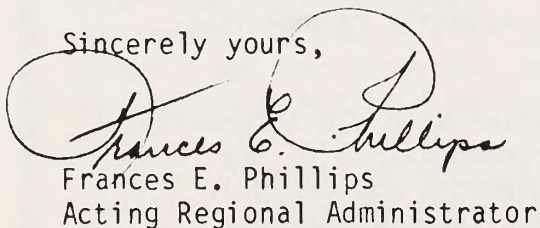 Sincerely yours,
Frances E. Phillips
Frances E. Phillips
Acting Regional Administrator